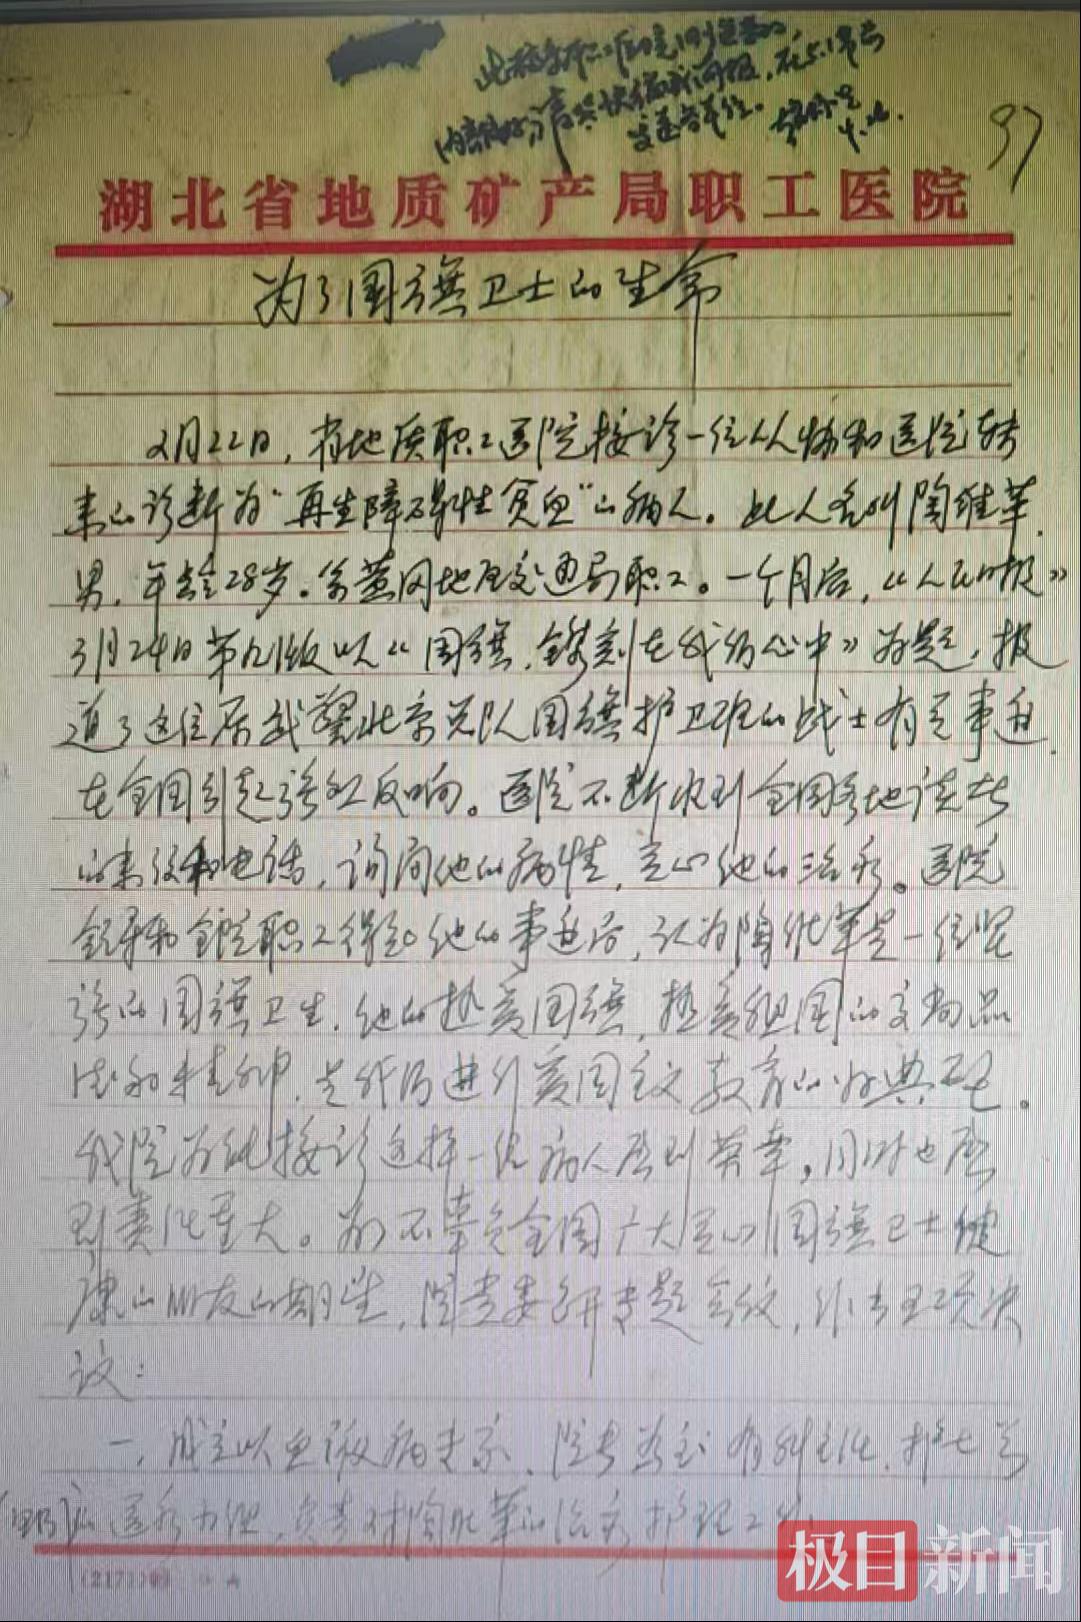 97
湖北省地质矿产局职工医院
为了国旗卫士的生命
2月22日，省地质职工医院接诊一位从协和医院转
来的诊断为“再生障碍性贫血”的病人。此人名叫陶维革，
男，年龄28岁。系黄冈地区交通局职工。一个月后，《人民日报》
3月24日第九版以《国旗，镌刻在我的心中》为题，报
道了这位原武警北京总队国旗护卫班的战士有关事迹，
在全国引起强烈反响。医院不断收到全国各地读者
的来信和电话，询问他的病情，关心他的治疗。医院
领导和全院职工得知他的事迹后，认为陶维革是一位坚
强的国旗卫士，他的热爱国旗，热爱祖国的文
德和精神，是我们进行爱国主义教育的好典型。
我院为能接诊这样一位病人感到荣幸，同时也感
到责任重大。为了不辜负全国广大关心国旗卫士健
康的朋友的期望，院党委召开专题会议，作出五项决
议：
一、成立以血液病专家、院长为主，有科主任、护士长
医疗小组，负责对陶维革的治疗护理工作
(2171)
极目新闻